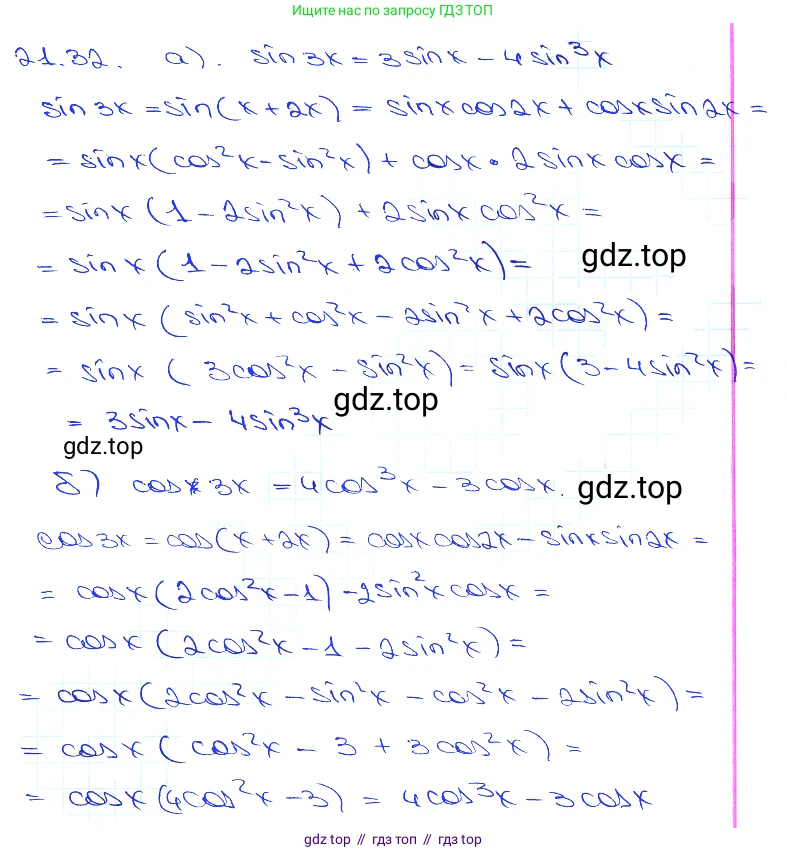 Ищите нас по запросу ГДЗ ТОП
21.32. а). sin3x = 3sinx - 4sin³x
sin3x = sin(x+2x) = sinxcos2x + cosxsin2x =
= sinx(cos²x - sin²x) + cosx · 2sinxcosx =
= sinx(1 - 2sin²x) + 2sinxcos²x =
= sinx(1 - 2sin²x + 2cos²x) =
gdz.top
= sinx(sin²x + cos²x - 2sin²x + 2cos²x) =
= sinx(3cos²x - sin²x) = sinx(3 - 4sin²x) =
gdz.top
= 3sinx - 4sin³x
gdz.top
б) cos3x = 4cos³x - 3cosx.
gdz.top
cos3x = cos(x+2x) = cosxcos2x - sinxsin2x =
= cosx(2cos²x - 1) - 2sin²xcosx =
= cosx(2cos²x - 1 - 2sin²x) =
= cosx(2cos²x - sin²x - cos²x - 2sin²x) =
= cosx(cos²x - 3 + 3cos²x) =
= cosx(4cos²x - 3) = 4cos³x - 3cosx
gdz top // гдз топ // gdz top